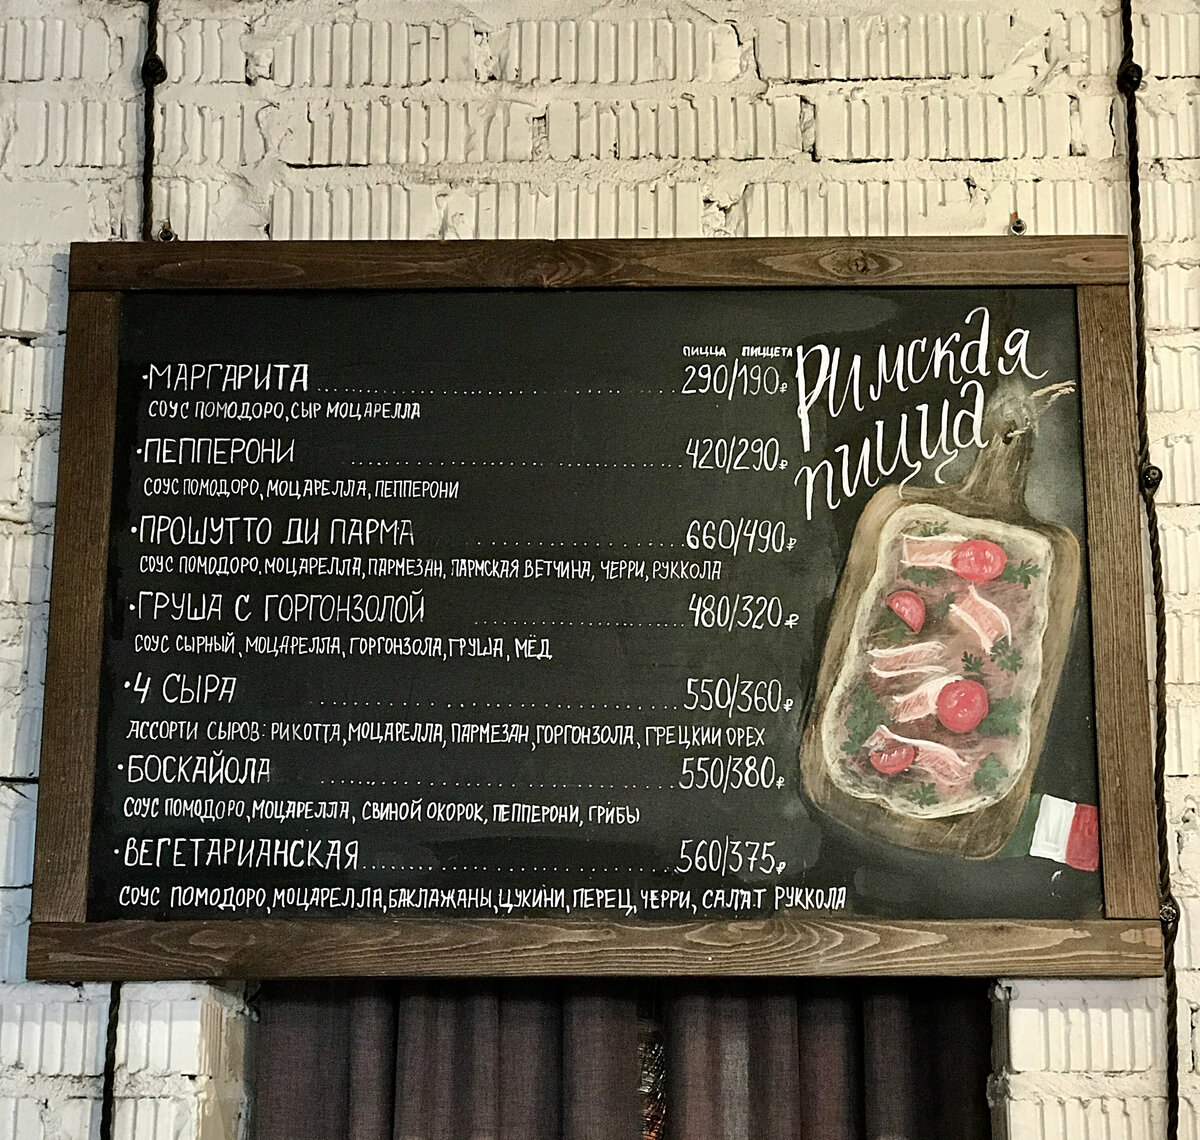 Римская
пицца
ПИЦЦА ПИЦЦЕТА
•МАРГАРИТА 290/190₽
СОУС ПОМОДОРО, СЫР МОЦАРЕЛЛА
•ПЕППЕРОНИ 420/290₽
СОУС ПОМОДОРО, МОЦАРЕЛЛА, ПЕППЕРОНИ
•ПРОШУТТО ДИ ПАРМА 660/490₽
СОУС ПОМОДОРО, МОЦАРЕЛЛА, ПАРМЕЗАН, ПАРМСКАЯ ВЕТЧИНА, ЧЕРРИ, РУККОЛА
•ГРУША С ГОРГОНЗОЛОЙ 480/320₽
СОУС СЫРНЫЙ, МОЦАРЕЛЛА, ГОРГОНЗОЛА, ГРУША, МЁД
•4 СЫРА 550/360₽
АССОРТИ СЫРОВ: РИКОТТА, МОЦАРЕЛЛА, ПАРМЕЗАН, ГОРГОНЗОЛА, ГРЕЦКИЙ ОРЕХ
•БОСКАЙОЛА 550/380₽
СОУС ПОМОДОРО, МОЦАРЕЛЛА, СВИНОЙ ОКОРОК, ПЕППЕРОНИ, ГРИБЫ
•ВЕГЕТАРИАНСКАЯ 560/375₽
СОУС ПОМОДОРО, МОЦАРЕЛЛА, БАКЛАЖАНЫ, ЦУКИНИ, ПЕРЕЦ, ЧЕРРИ, САЛАТ РУККОЛА